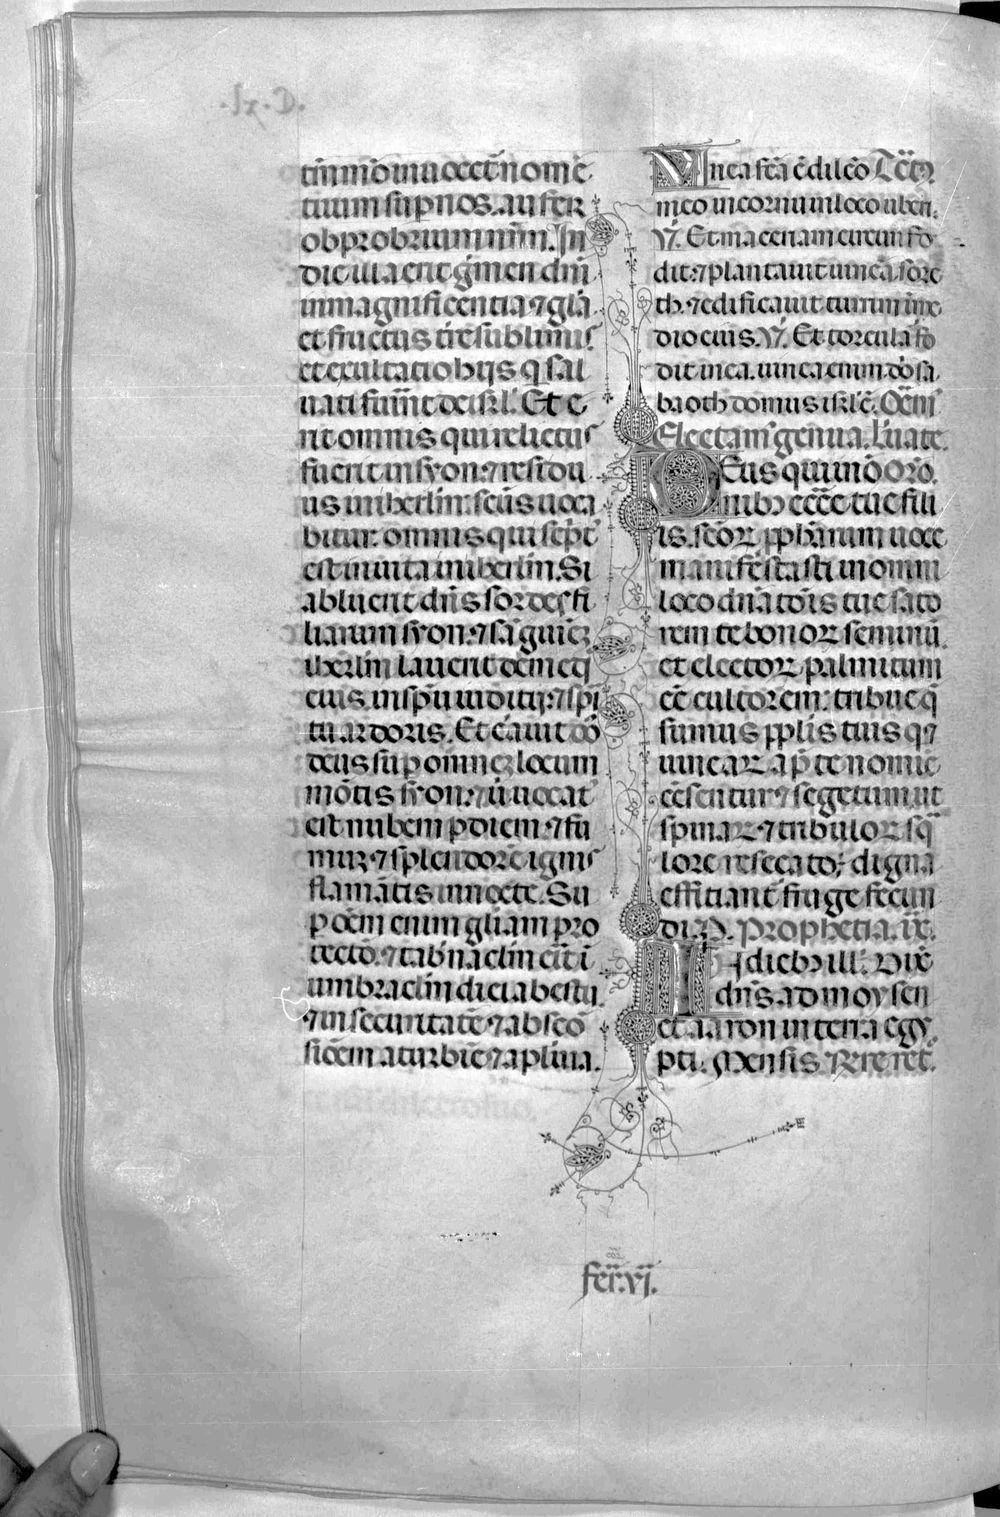 ·lx·D·
tm̄mō inuocet᷑ nomē
tuum sup nos. aufer
obprobrium nr̄m. In
die illa erit g̃men dn̄i
in magnificentia ⁊ gl̄a
et fructus tr̄e sublimis
et exultatio hijs q̄ sal
uati fuerīt de isrl̄. Et e
rit omnis qui relictus
fuerit in syon: ⁊ residu
us in ihrl̄m: scūs uoca
bitur. omnis qui sc̄pt᷑
est in uita in ihrl̄m. Si
abluerit dn̄s sordes fi
liarum syon: ⁊ sāguinēꝫ
ihrl̄m lauerit de medio
eius. in spū iudicij: ⁊ spi
tu ardoris. Et c̄auit dn̄s
deus sup om̄neꝫ locum
mōtis syon: ⁊ ubi uocat᷑
est nubem p diem: ⁊ fu
muꝫ ⁊ splendorē ignis
flamātis in nocte. Su
p oēm enim gl̄iam pro
tectō. ⁊ tab̄naclm̄ erit ī
umbraclm̄ diei ab estu.
⁊ in securitatē ⁊ abscō
sionem a turbīe ⁊ a pluuia.
Uinea fc̄a ē dilc̄o Tct᷑.
meo in cornu in loco uberi.
V̓. Et maceriam circunfo
dit: ⁊ plantauit uineā sore
th. ⁊ edificauit turrim ī me
dio eius. V̓. Et torcular fo
dit in ea. uinea enim dn̄i sa
baoth domus isrl̄ ē. Or̄em̄
Flectam᷑ genua. Leuate.
Deus qui in ōib
us ecc̄e tue fili
is. scōꝝ pphārum uoce
manifestasti in omni
loco dn̄atōis tue sato
rem te bonoꝝ seminū.
et electoꝝ palmitum
eē cultorem: tribue q̄
sumus pplis tuis q ⁊
uineaꝝ ap te nomīe
cēsentur ⁊ segetum: ut
spinaꝝ ⁊ tribuloꝝ sq̄
lore resecato: digna
efficiant᷑ fruge fecun
di. P. Prophetia. ix.
In dieb᷒ ill̄. Dix̄
dn̄s ad moysen
et aaron in terra egy
pti. Mensis iste ret.
fer̄. vi.